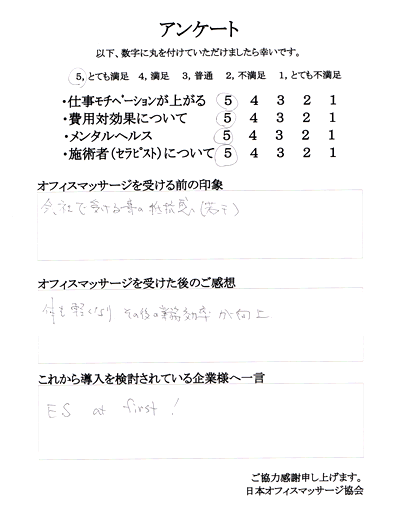 アンケート
以下、数字に丸を付けていただけましたら幸いです。
5, とても満足 4, 満足 3, 普通 2, 不満足 1, とても不満足
・仕事モチベーションが上がる 5 4 3 2 1
・費用対効果について 5 4 3 2 1
・メンタルヘルス 5 4 3 2 1
・施術者(セラピスト)について 5 4 3 2 1
オフィスマッサージを受ける前の印象
会社で受ける事の抵抗感(若干)
オフィスマッサージを受けた後のご感想
体も軽くなり その後の業務効率が向上
これから導入を検討されている企業様へ一言
ES at first!
ご協力感謝申し上げます。
日本オフィスマッサージ協会